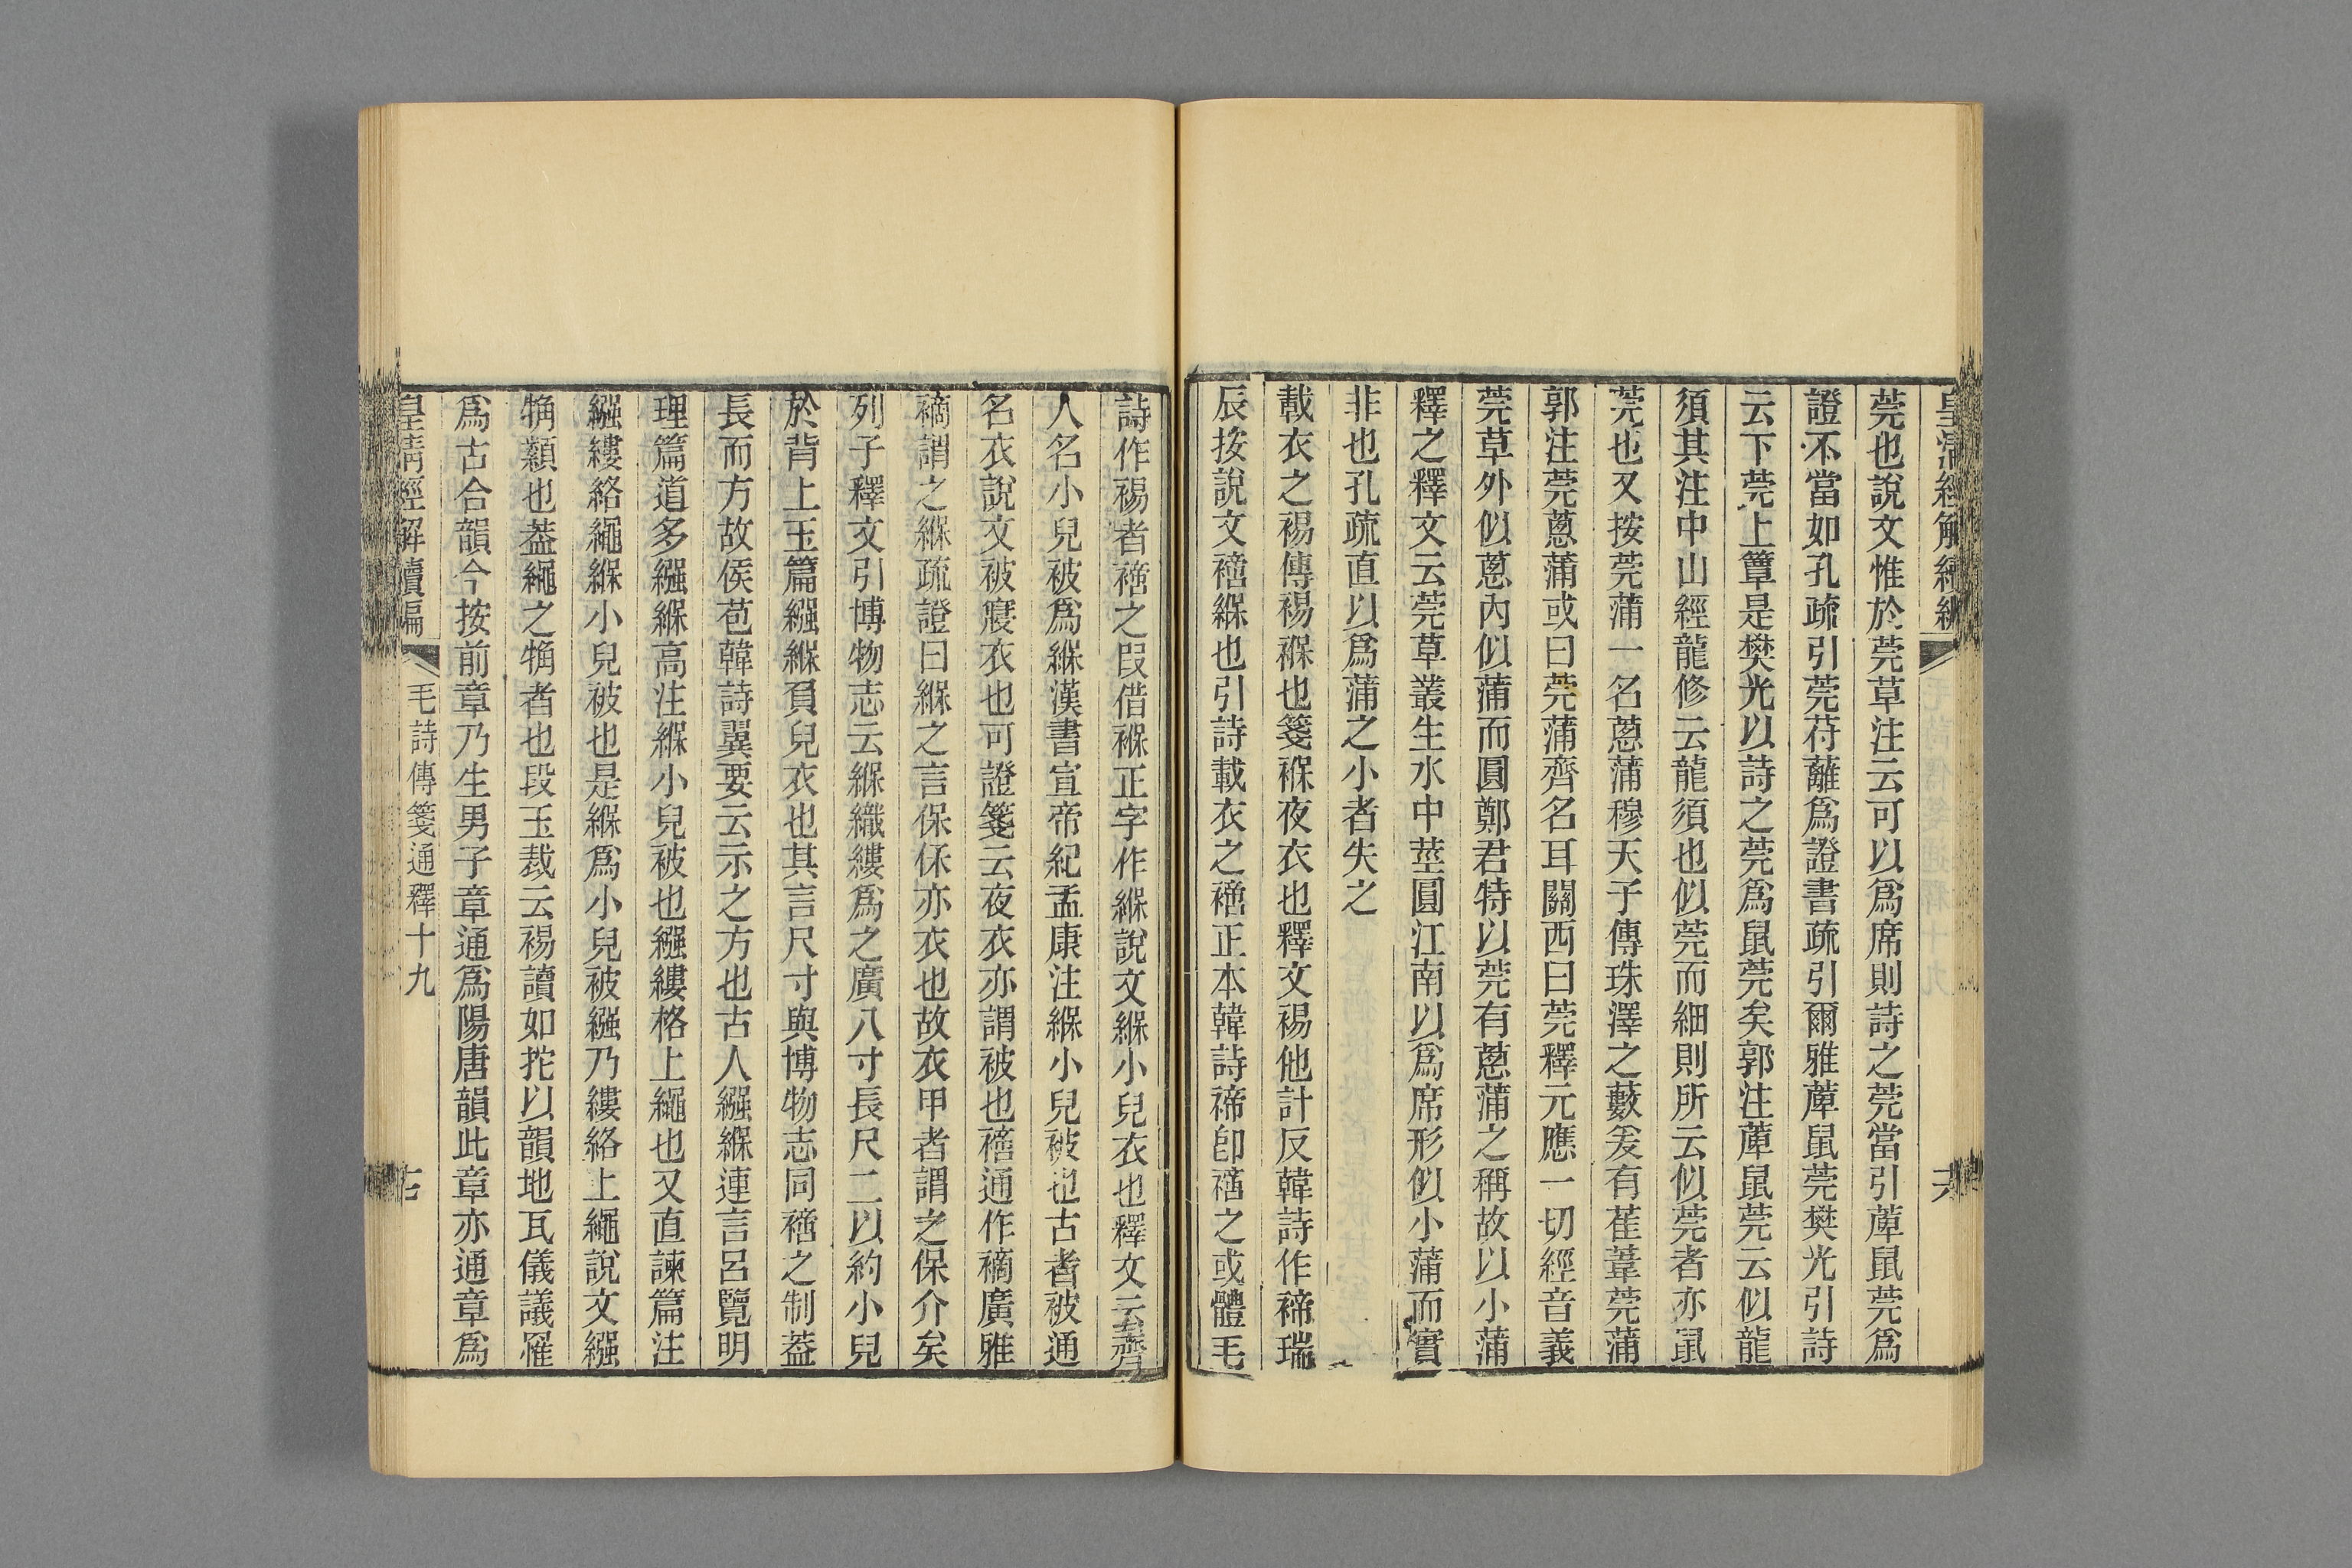 皇清經解續編
莞也說文惟於莞草注云可以爲席則詩之莞當引藨鼠莞爲
證不當如孔疏引莞苻蘺爲證書疏引爾雅藨鼠莞樊光引詩
云下莞上簟是樊光以詩之莞爲鼠莞矣郭注藨鼠莞云似龍
須其注中山經龍修云龍須也似莞而細則所云似莞者亦鼠
莞也又按莞蒲一名蔥蒲穆天子傳珠澤之藪爰有雚葦莞蒲
郭注莞蔥蒲或曰莞蒲齊名耳關西曰莞釋元應一切經音義
莞草外似蔥內似蒲而圓鄭君特以莞有蔥蒲之稱故以小蒲
釋之釋文云莞草叢生水中莖圓江南以爲席形似小蒲而實
非也孔疏直以爲蒲之小者失之
載衣之裼傳裼褓也箋褓夜衣也釋文裼他計反韓詩作褅瑞
辰按說文䙗緥也引詩載衣之䙗正本韓詩褅卽䙗之或體毛
詩作裼者䙗之叚借褓正字作緥說文緥小兒衣也釋文云齊
人名小兒被爲緥漢書宣帝紀孟康注緥小兒被也古者被通
名衣說文被寢衣也可證箋云夜衣亦謂被也䙗通作䙗廣雅
䙗謂之緥疏證曰緥之言保保亦衣也故衣甲者謂之保介矣
列子釋文引博物志云緥織縷爲之廣八寸長尺二以約小兒
於背上玉篇繦緥負兒衣也其言尺寸與博物志同䙗之制葢
長而方故侯苞韓詩翼要云示之方也古人繦緥連言呂覽明
理篇道多繦緥高注緥小兒被也繦縷格上繩也又直諫篇注
繦縷絡繩緥小兒被也是緥爲小兒被繦乃縷絡上繩說文繦
觕纇也葢繩之觕者也段玉裁云裼讀如拕以韻地瓦儀議罹
爲古合韻今按前章乃生男子章通爲陽唐韻此章亦通章爲
皇清經解續編
毛詩傳箋通釋十九